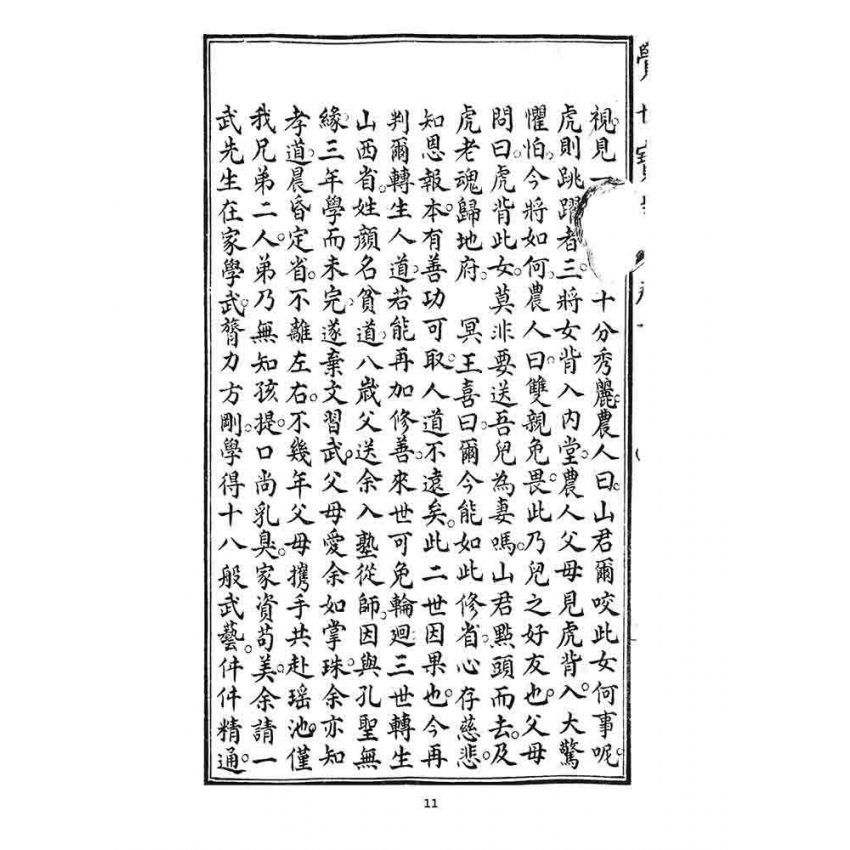 覺世寶
視見一 十分秀麗。農人曰。山君爾咬此女何事呢。
虎則跳躍者三。將女背入內堂。農人父母見虎背入。大驚
懼怕。今將如何。農人曰。雙親免畏。此乃兒之好友也。父母
問曰。虎背此女。莫非要送吾兒為妻嗎。山君點頭而去。及
虎老魂歸地府。 冥王喜曰。爾今能如此修省。心存慈悲。
知恩報本。有善功可取。人道不遠矣。此二世因果也。今再
判爾轉生人道。若能再加修善。來世可免輪迴。三世轉生
山西省。姓顏名貧道。八歲父送余入塾從師。因與孔聖無
緣。三年學而未完。遂棄文習武。父母愛余如掌珠。余亦知
孝道。晨昏定省。不離左右。不幾年父母攜手共赴瑤池。僅
我兄弟二人。弟乃無知孩提。口尚乳臭。家資苟美。余請一
武先生在家學武。膂力方剛。學得十八般武藝。件件精通。
11